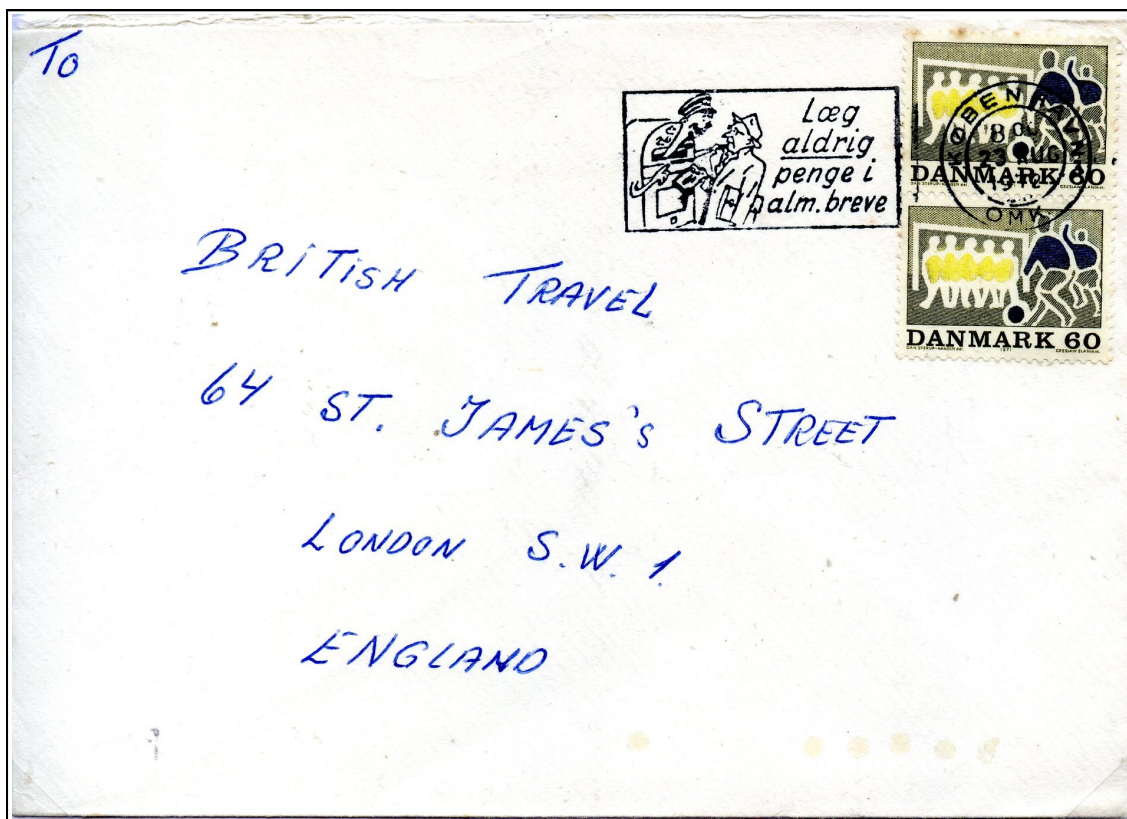 To
Læg
aldrig
penge i
alm. breve
KØBENHAVN
23 AUG
OMK
DANMARK 60
DANMARK 60
1971
CZESLAW SLANIA SC.
BRITISH TRAVEL
64 ST. JAMES's STREET
LONDON S.W. 1.
ENGLAND